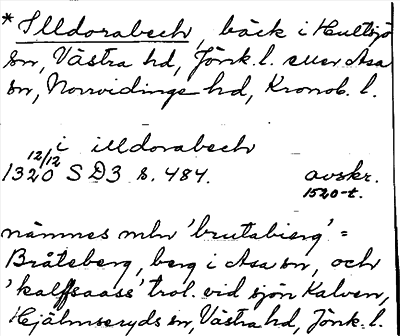 * Illdorabech, bäck i Hultsjö
sn, Västra hd, Jönk. l. eller Asa
sn, Norrvidinge hd, Kronob. l.
i illdorabech
12/12
1320 SD3 s. 484. avskr.
1520-t.
nämnes mhr 'brutabierg' =
Bråteberg, berg i Asa sn, och
'kalfsaass' trol. vid sjön Kalven,
Hjälmseryds sn, Västra hd, Jönk. l.